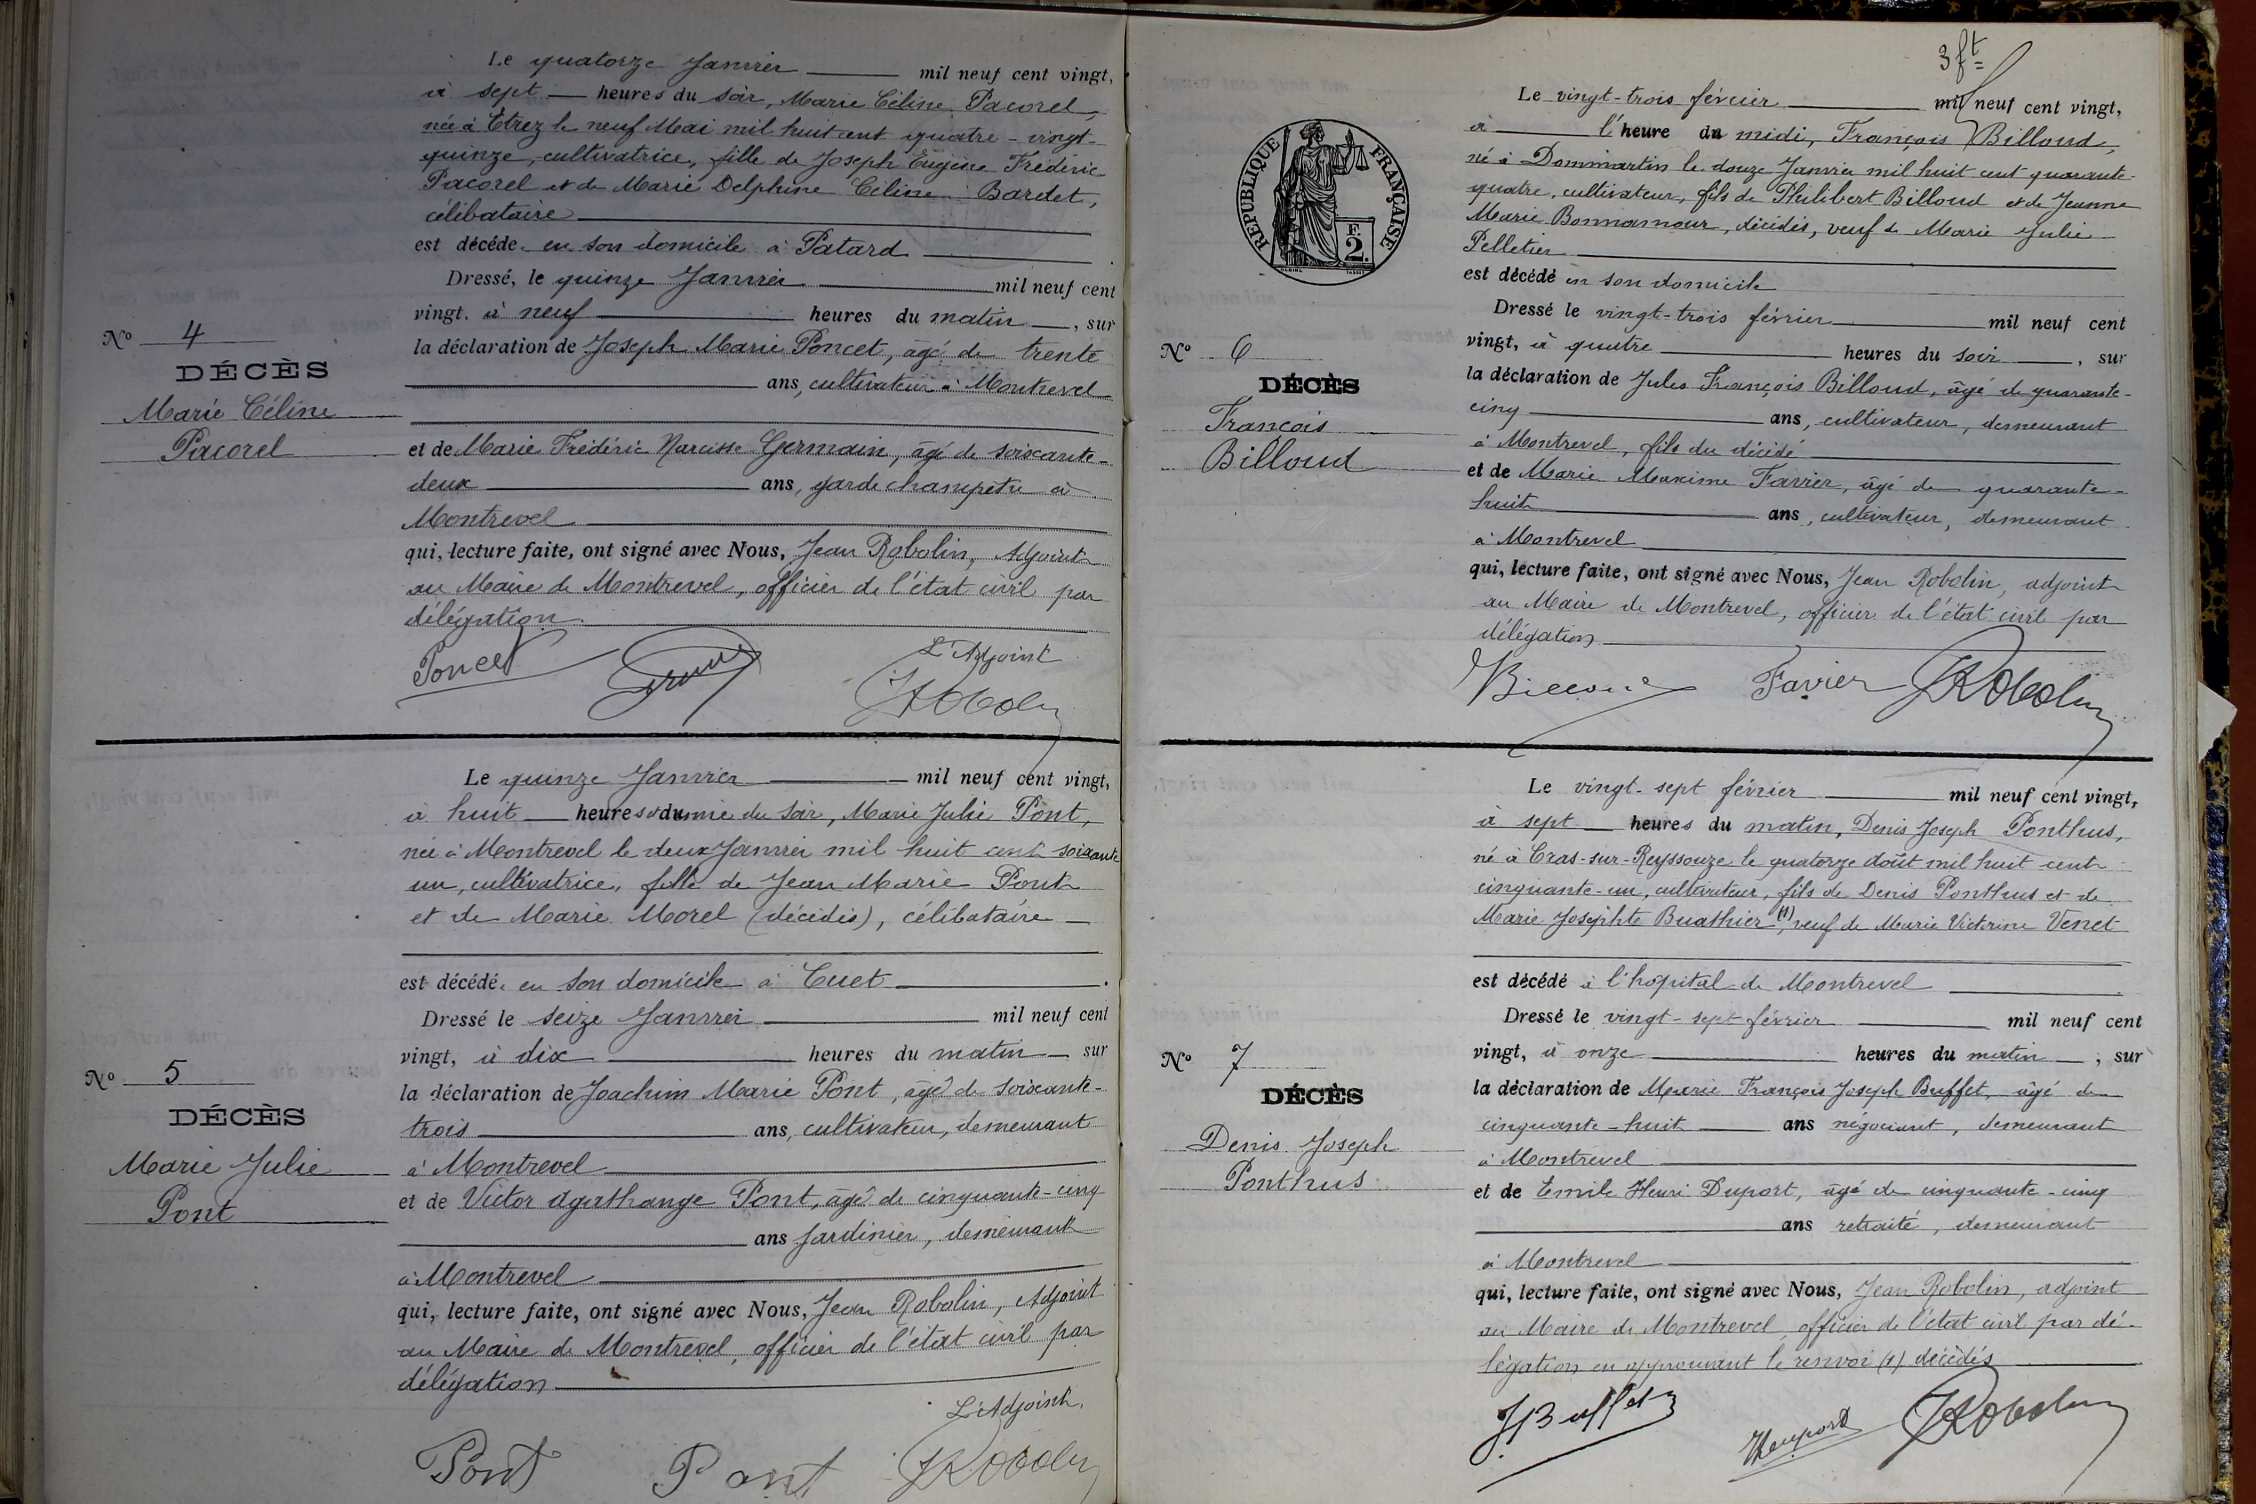 Le quatorze Janvier mil neuf cent vingt,
à sept heures du soir, Marie Céline Pacorel,
née à Etrez le neuf Mai mil huit cent quatre-vingt-
quinze, cultivatrice, fille de Joseph Eugène Frédéric
Pacorel et de Marie Delphine Céline Bardet,
célibataire
est décédé en son domicile à Patard
Dressé, le quinze Janvier mil neuf cent
vingt, à neuf heures du matin, sur
la déclaration de Joseph Marie Poncet, âgé de trente
ans, cultivateur à Montrevel
et de Marie Frédéric Narcisse Germain, âgé de soixante-
deux ans, garde champêtre à
Montrevel
qui, lecture faite, ont signé avec Nous, Jean Robolin, Adjoint
au Maire de Montrevel, officier de l'état civil par
délégation
Poncet
L'Adjoint
JRobolin
No 4
DÉCÈS
Marie Céline
Pacorel
Le quinze Janvier mil neuf cent vingt,
à huit heures du soir, Marie Julie Pont,
née à Montrevel le deux Janvier mil huit cent soixante
un, cultivatrice, fille de Jean Marie Pont
et de Marie Morel (décédés), célibataire
est décédé en son domicile à Cuet
Dressé le seize Janvier mil neuf cent
vingt, à dix heures du matin sur
la déclaration de Joachim Marie Pont, âgé de soixante-
trois ans, cultivateur, demeurant
à Montrevel
et de Victor Agathange Pont, âgé de cinquante-cinq
ans Jardinier, demeurant
à Montrevel
qui, lecture faite, ont signé avec Nous, Jean Robolin, Adjoint
au Maire de Montrevel, officier de l'état civil par
délégation
L'Adjoint,
Pont Pont JRobolin
No 5
DÉCÈS
Marie Julie
Pont
3 ft
RÉPUBLIQUE FRANÇAISE
F.
2.
Le vingt-trois février mil neuf cent vingt,
à l'heure du midi, François Billoud,
né à Dommartin le douze Janvier mil huit cent quarante-
quatre, cultivateur, fils de Philibert Billoud et de Jeanne
Marie Bonnamour, décédés, veuf de Marie Julie
Pelletier
est décédé en son domicile
Dressé le vingt-trois février mil neuf cent
vingt, à quatre heures du soir, sur
la déclaration de Jules François Billoud, âgé de quarante-
cinq ans, cultivateur, demeurant
à Montrevel, fils du décédé
et de Marie Maxime Favier, âgé de quarante-
huit ans, cultivateur, demeurant
à Montrevel
qui, lecture faite, ont signé avec Nous, Jean Robolin, adjoint
au Maire de Montrevel, officier de l'état civil par
délégation
Billoud Favier JRobolin
No 6
DÉCÈS
François
Billoud
Le vingt-sept février mil neuf cent vingt,
à sept heures du matin, Denis Joseph Ponthus,
né à Cras-sur-Reyssouze le quatorze Août mil huit cent
cinquante-un, cultivateur, fils de Denis Ponthus et de
Marie Josephte Buathier (1), veuf de Marie Victorine Venet
est décédé à l'hôpital de Montrevel
Dressé le vingt-sept février mil neuf cent
vingt, à onze heures du matin, sur
la déclaration de Marie François Joseph Buffet, âgé de
cinquante-huit ans négociant, demeurant
à Montrevel
et de Emile Henri Duport, âgé de cinquante-cinq
ans retraité, demeurant
à Montrevel
qui, lecture faite, ont signé avec Nous, Jean Robolin, adjoint
au Maire de Montrevel, officier de l'état civil par dé-
légation en approuvant le renvoi (1) décédés
JBuffet HDuport JRobolin
No 7
DÉCÈS
Denis Joseph
Ponthus